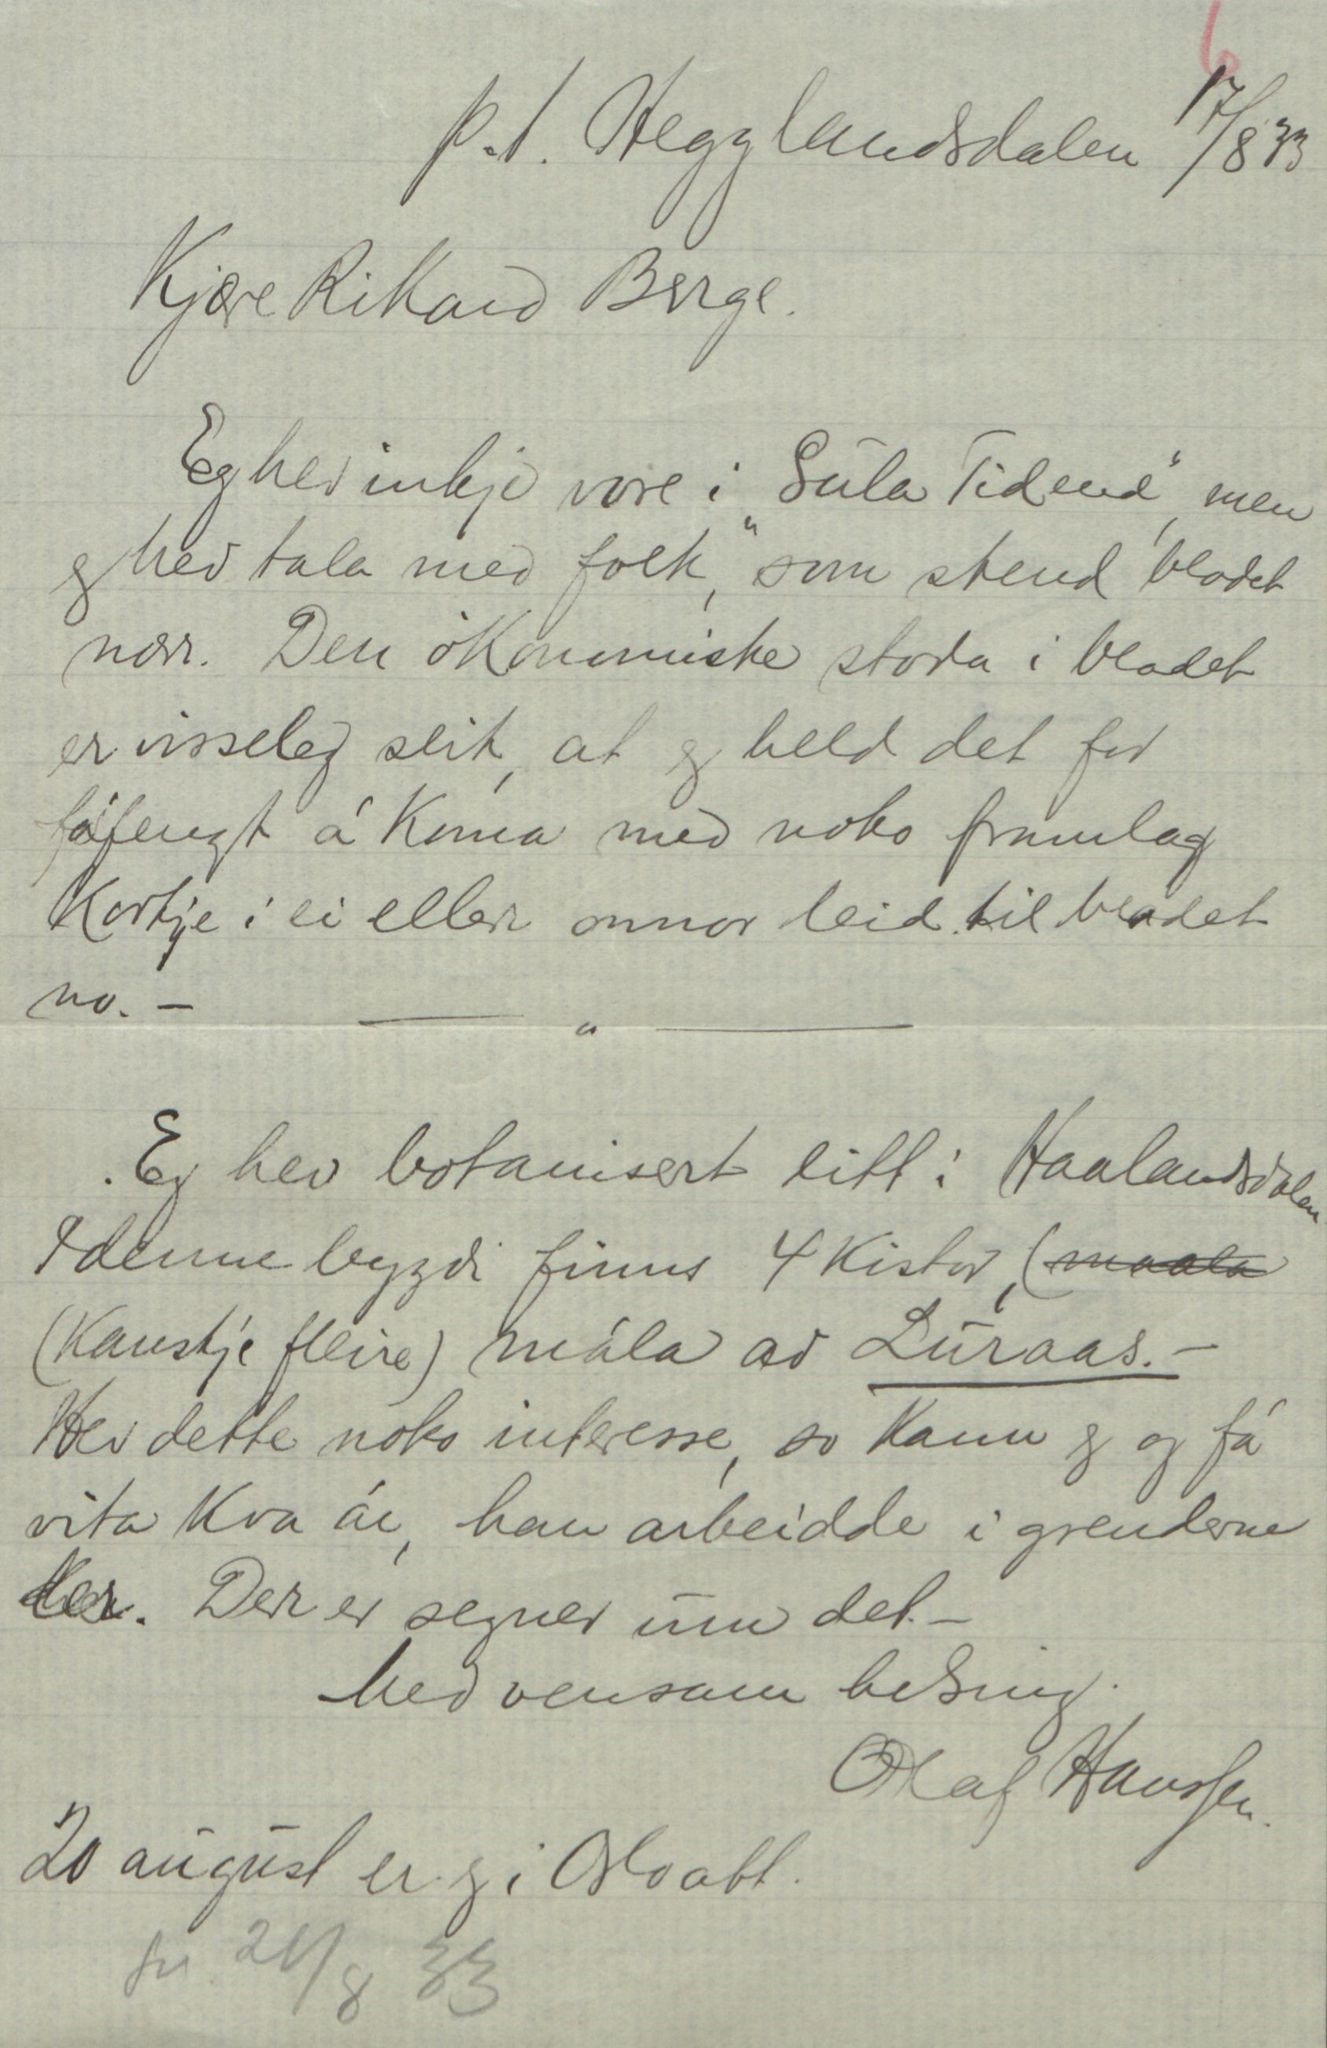 6
p.t. Hegglandsdalen 17/8 33
Kjære Rikard Berge.
Eg hev inkje vore i „Gula Tidend“, men
eg hev tala med folk, som stend bladet
nær. Den ökonomiske stoda i bladet
er visseleg slik, at eg held det for
fåfengt å koma med noko framlag
korkje i ei eller onnor leid til bladet
no. –
Eg hev botanisert litt i Haalandsdalen
I denne bygdi finns 4 kistor, (maala
(kanskje fleire) måla av Luraas. –
Hev dette noko interesse, so kann eg og få
vita kva år, han arbeidde i grenderne
her. Der er segner um det. –
Med vensam helsing.
Olaf Hanssen.
20 august er eg i Oslo att.
sv. 21/8 33